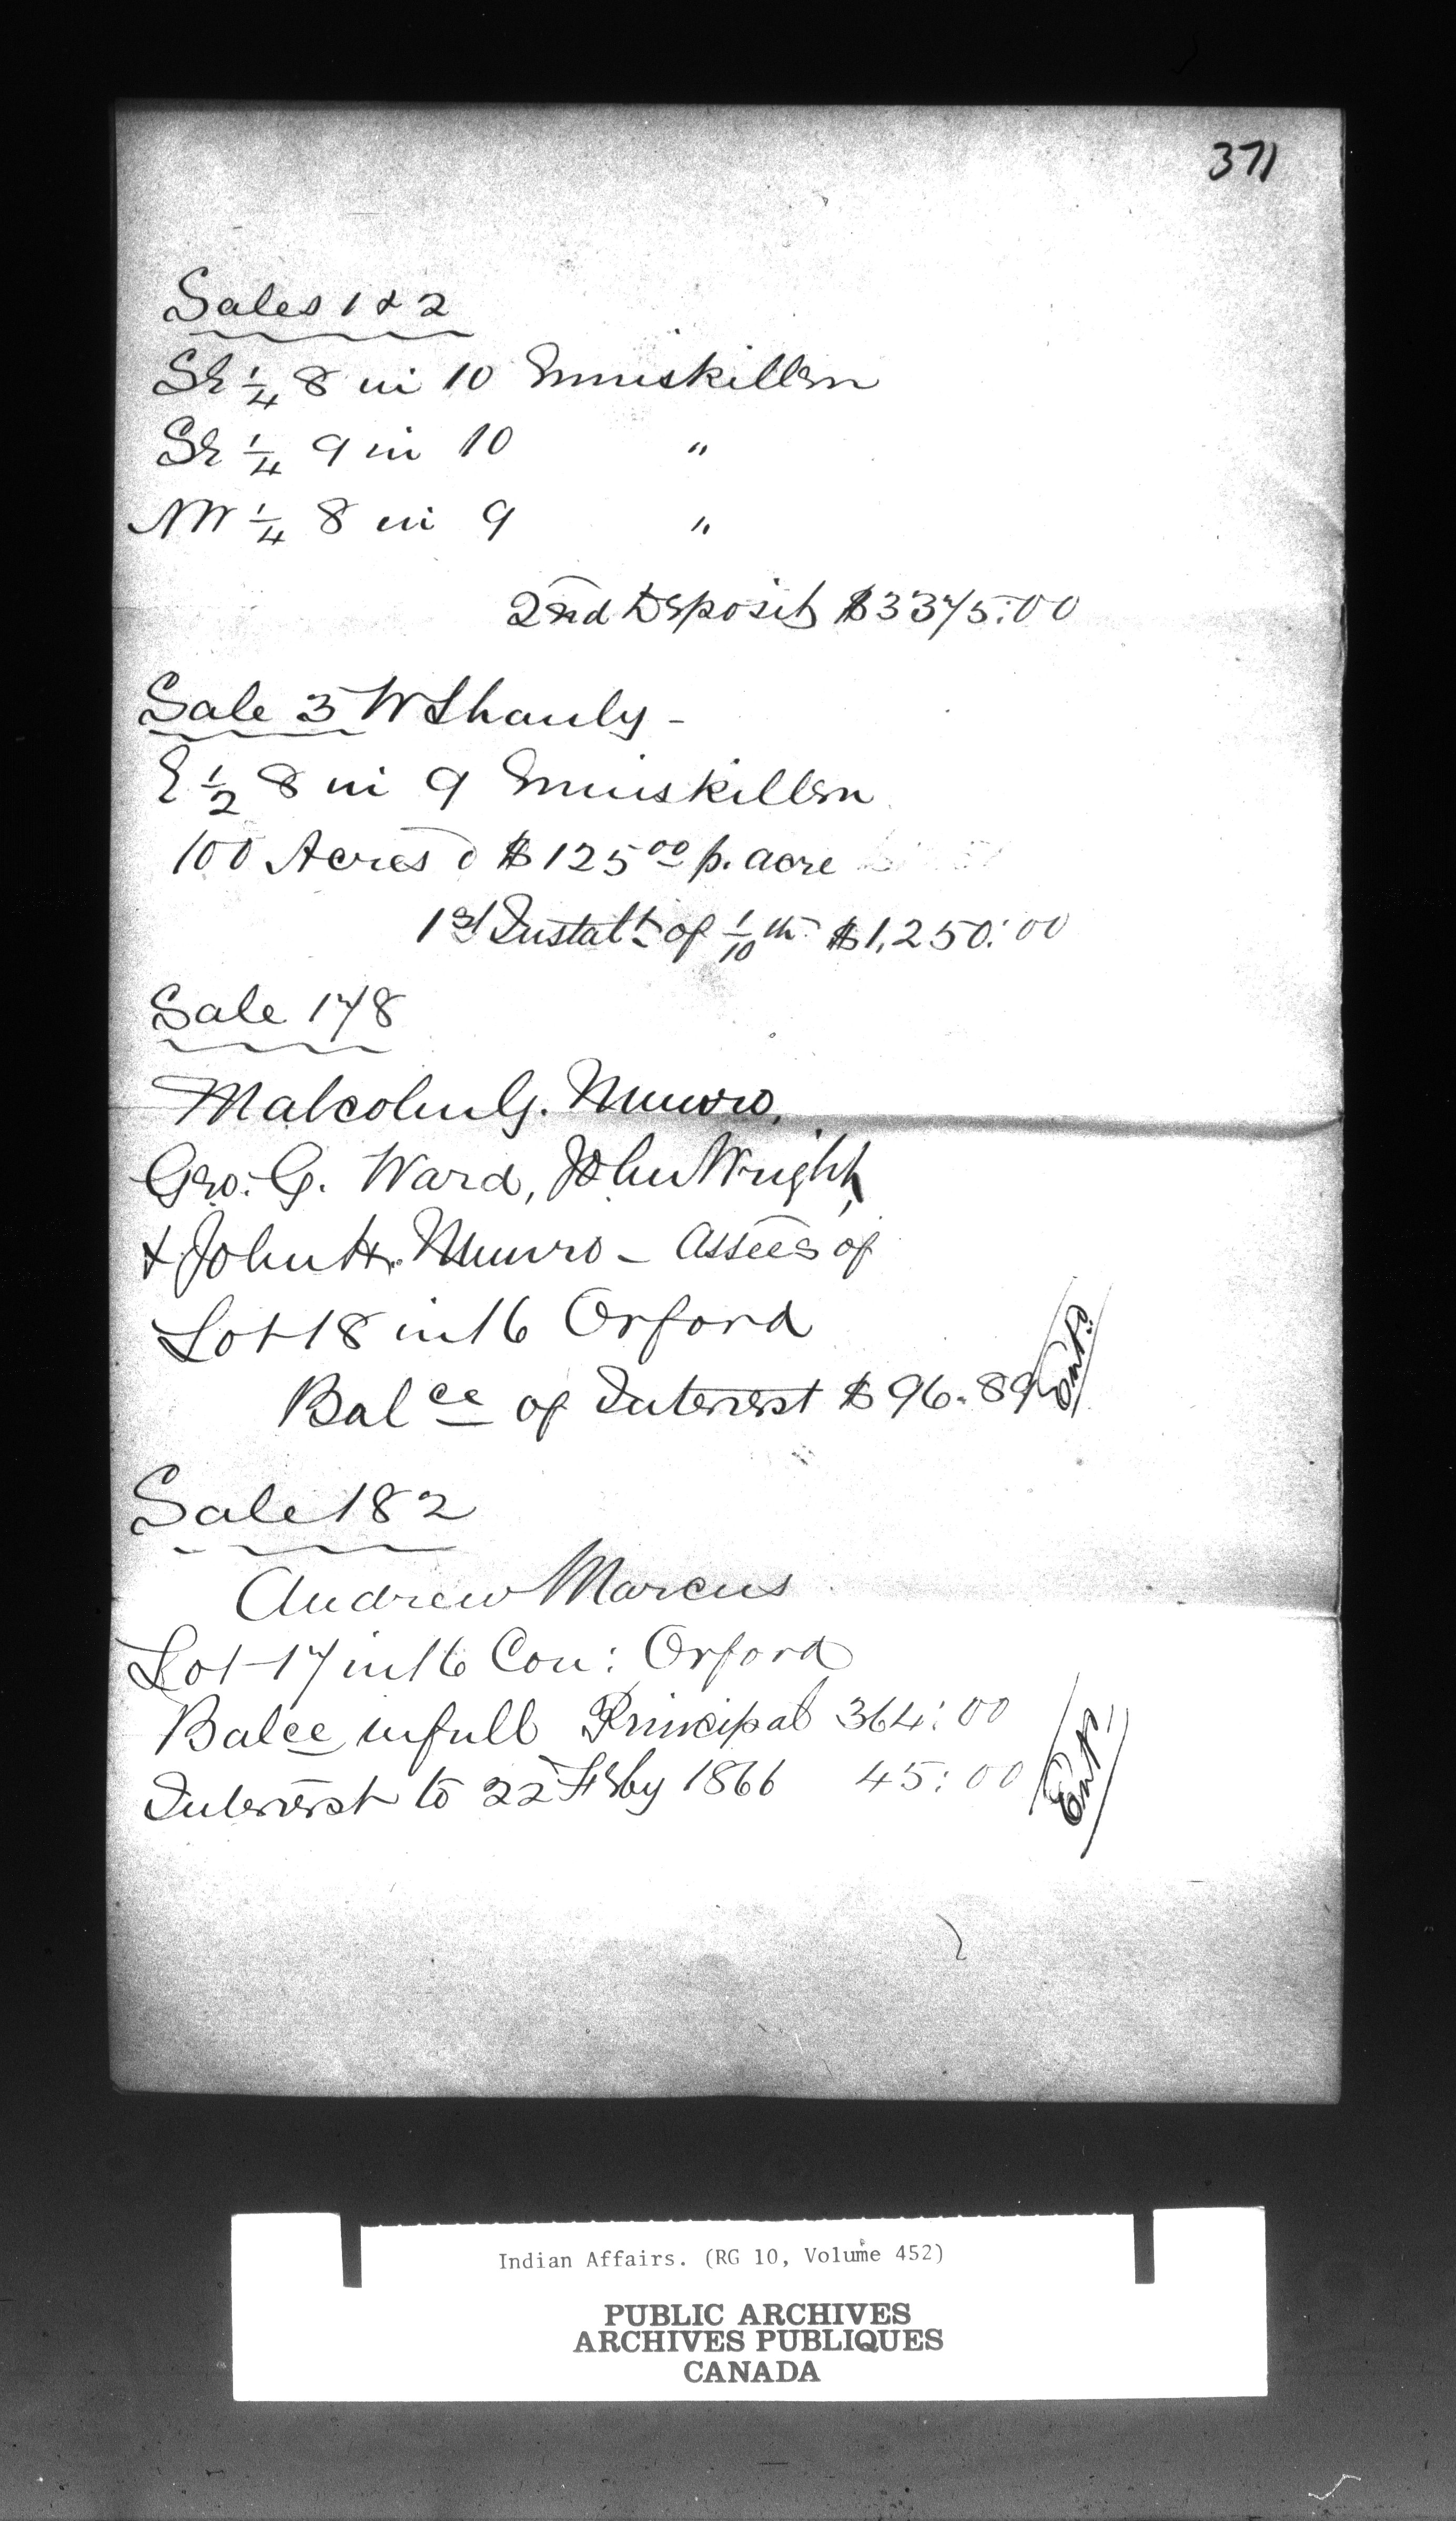 371
Sales 1 & 2
SE 1/4 8 in 10 Enniskillen
SE 1/4 9 in 10 "
NW 1/4 8 in 9 "
2nd Deposit $3375:00
Sale 3 W Shanly -
E 1/2 8 in 9 Enniskillen
100 Acres @ $125 00 p. acre
1st Instalt of 1/10 th $1,250:00
Sale 178
Malcolm G. Munro,
Geo. G. Ward, John Wright,
& John H. Munro - Assees of
Lot 18 in 16 Orford
Balce of Interest $96.89
Ent.
Sale 182
Andrew Marcus
Lot 17 in 16 Con: Orford
Balce in full Principal 364:00
Interest to 22 Feby 1866 45:00
Ent.
Indian Affairs. (RG 10, Volume 452)
PUBLIC ARCHIVES
ARCHIVES PUBLIQUES
CANADA